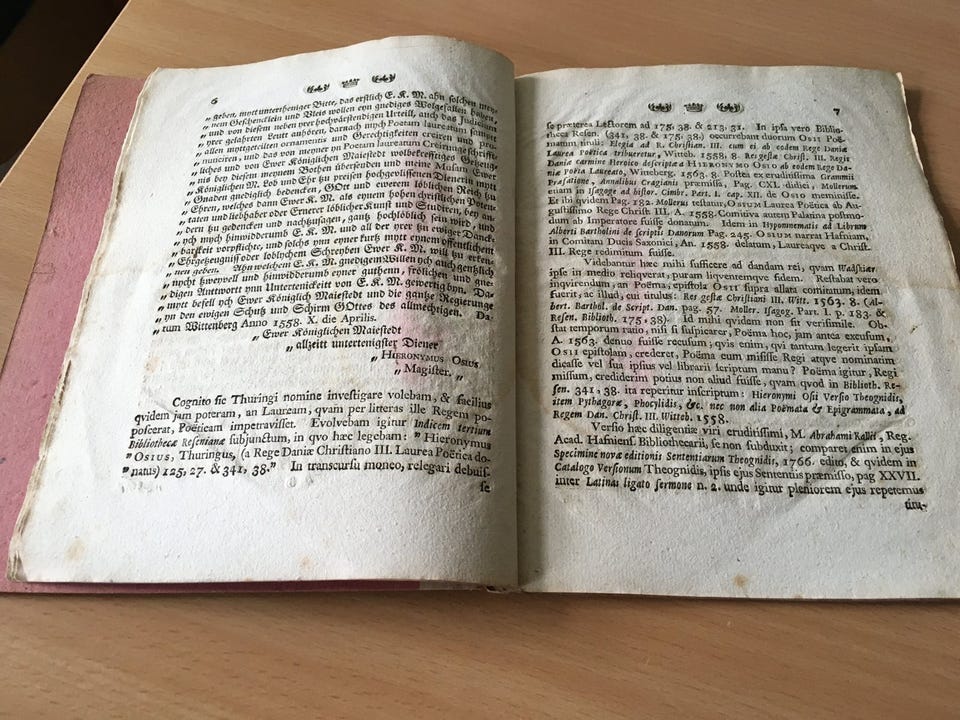 6
„ geben, mytt untertheniger Bitte, das erstlich E. K. M. ahn solchen mey-
„ nem Geschencklein und Vleis wollen eyn gnediges Wolgefallen haben,
„ und von diesem neben yrer hochwirdenden Urteill, auch das Judicium
„ yrer gelerten Leutt anhören, darnach mych Poetam laureatum sampt
„ allen mytgeteilten ornaments und Gerechtigkeiten creiren und pro-
„ nunciren, und das von meyner yn Poetam laureatum Creirunge schrifft-
„ liches und von Ewer Königlichen Maiestedt volbekrefftiges Gezeug-
„ nis bey diesem meynen Bothen übersenden und meine Musam Ewer
„ Königlichen M. Lob und Ehr zu preisen hochgevlissenen Dienerin mytt
„ Gnaden gnediglich bedencken, GOtt und ewerem löblichen Reich zu
„ Ehren, welches dann Ewer K. M. als eynem hohen christlichen Poten-
„ taten und liebhaber oder Ernerer löblicher Kunst und Studiren, bey an-
„ dern zu gedencken und nachzusagen, gantz hochlöblich sein wird, und
„ ych mych hinwiderumb E. K. M. und all der yrer zu ewiger Danck-
„ barkeit verpflichte, und solchs yzn eyner kurtz mytt eynem öffentlichem
„ Ehrgezeugnis oder loblychem Schreyben Ewer K. M. will zu erken-
„ nen geben. Ahn welchem E. K. M. gnedigem Willen ych auch gentzlich
„ nycht zweyvell und hinwidderumb eyner guthenn, frölichen und gne-
„ digen Anttwortt ynn Untertenickeitt von E. K. M. gewertig byn. Da-
„ mytt befell ych Ewer Königlich Maiestedt und die gantze Regierunge
„ yn den ewigen Schutz und Schirm GOttes des allmechtigen. Da-
„ tum Wittenberg Anno 1558. X. die Aprilis.
„ Ewer Königlichen Maiestedt
„ allzeitt untertenigster Diener
„ HIERONYMUS OSIUS
„ Magister. „
Cognito sic Thuringi nomine investigare volebam, & facilius
quidem jam poteram, an Lauream, quam per litteras ille Regem po-
poscerat, Poëticam impetravisset. Evolvebam igitur Indicem tertium
Bibliothecæ Resenianæ subjunctum, in qvo hæc legebam: „ Hieronymus
„ OSIUS, Thuringus, (a Rege Daniæ Christiano III. Laurea Poëtica do-
natus) 125, 27. & 341, 38.” In transcursu moneo, relegari debuis-
se
7
se præterea Lectorem ad 175. 38. & 213. 31. In ipsa vero Biblio-
theca Resen. (341. 38. & 175. 38.) occurrebant duorum OSII Poë-
matum tituli: Elegia ad R. Christian. III. cum ei ab eodem Rege Daniæ
Laurea Poëtica tribueretur, Witteb. 1558. 8. Res gestæ Christ. III. Regis
Daniæ Carmine Heroico descriptæ a HIERONYMO OSIO ab eodem Rege Da-
niæ Poëta Laureato, Witeberg. 1563. 8. Postea ex eruditissima Grammii
Præfatione, Annalibus Cragianis præmissa, Pag. CXL didici, Mollerum
etiam in Isagoge ad histor. Cimbr. Part. I. cap. XII. de OSIO meminisse.
Et ibi qvidem Pag. 182. Mollerus testatur, OSIUM Laurea Poëtica ab Au-
gustissimo Rege Christ. III. A. 1558. Comitiva autem Palatina postmo-
dum ab Imperatore fuisse donatum. Idem in Hypomnematis ad Librum
Alberti Bartholini de scriptis Danorum Pag. 245. OSIUM narrat Hafniam,
in Comitatu Ducis Saxonici, An. 1558. delatum, Laureaque a Christ.
III. Rege redimitum fuisse.
Videbantur hæc mihi sufficere ad dandam rei, quam Wadskiær
ipse in medio reliqverat, puram liqventemque fidem. Restabat vero
inqvirendum, an Poëma, epistolæ OSII supra allatæ comitatum, idem
fuerit, ac illud, cui titulus: Res gestæ Christiani III. Witt. 1563. 8. (Al-
bert. Barthol. de Script. Dan. pag. 57. Moller. Isagog. Part. I. p. 183. &
Resen. Biblioth. 175. 38). Id mihi quidem non fit verisimile. Ob-
stat temporum ratio, nisi si suspicarer, Poëma hoc, jam antea excusum,
A. 1563. denuo fuisse recusum; quis enim, qui tantum legerit excusam
OSII epistolam, crederet, Poëma eum misisse Regi atque nominatim
dicasse vel sua ipsius vel librarii scriptum manu? Poëma igitur, Regi
missum, crediderim potius non aliud fuisse, quam quod in Biblioth. Re-
sen. 341. 38 ita reperitur inscriptum: Hieronymi Osii Versio Theognidis,
item Pythagoræ, Phocylidis, &c. nec non alia Poëmata & Epigrammata, ad
Regem Dan. Christ. III. Witteb. 1558.
Versio hæc diligentiæ viri eruditissimi, M. Abrahami Kallii, Reg.
Acad. Hafniens. Bibliothecarii, se non subduxit; comparet enim in ejus
Specimine novæ editionis Sententiarum Theognidis, 1766. edito, & qvidem in
Catalogo Versionum Theognidis, ipsis ejus Sententiis præmisso, pag XXVII.
inter Latinas ligato sermone n. 2. unde igitur pleniorem ejus repetemus
titu-